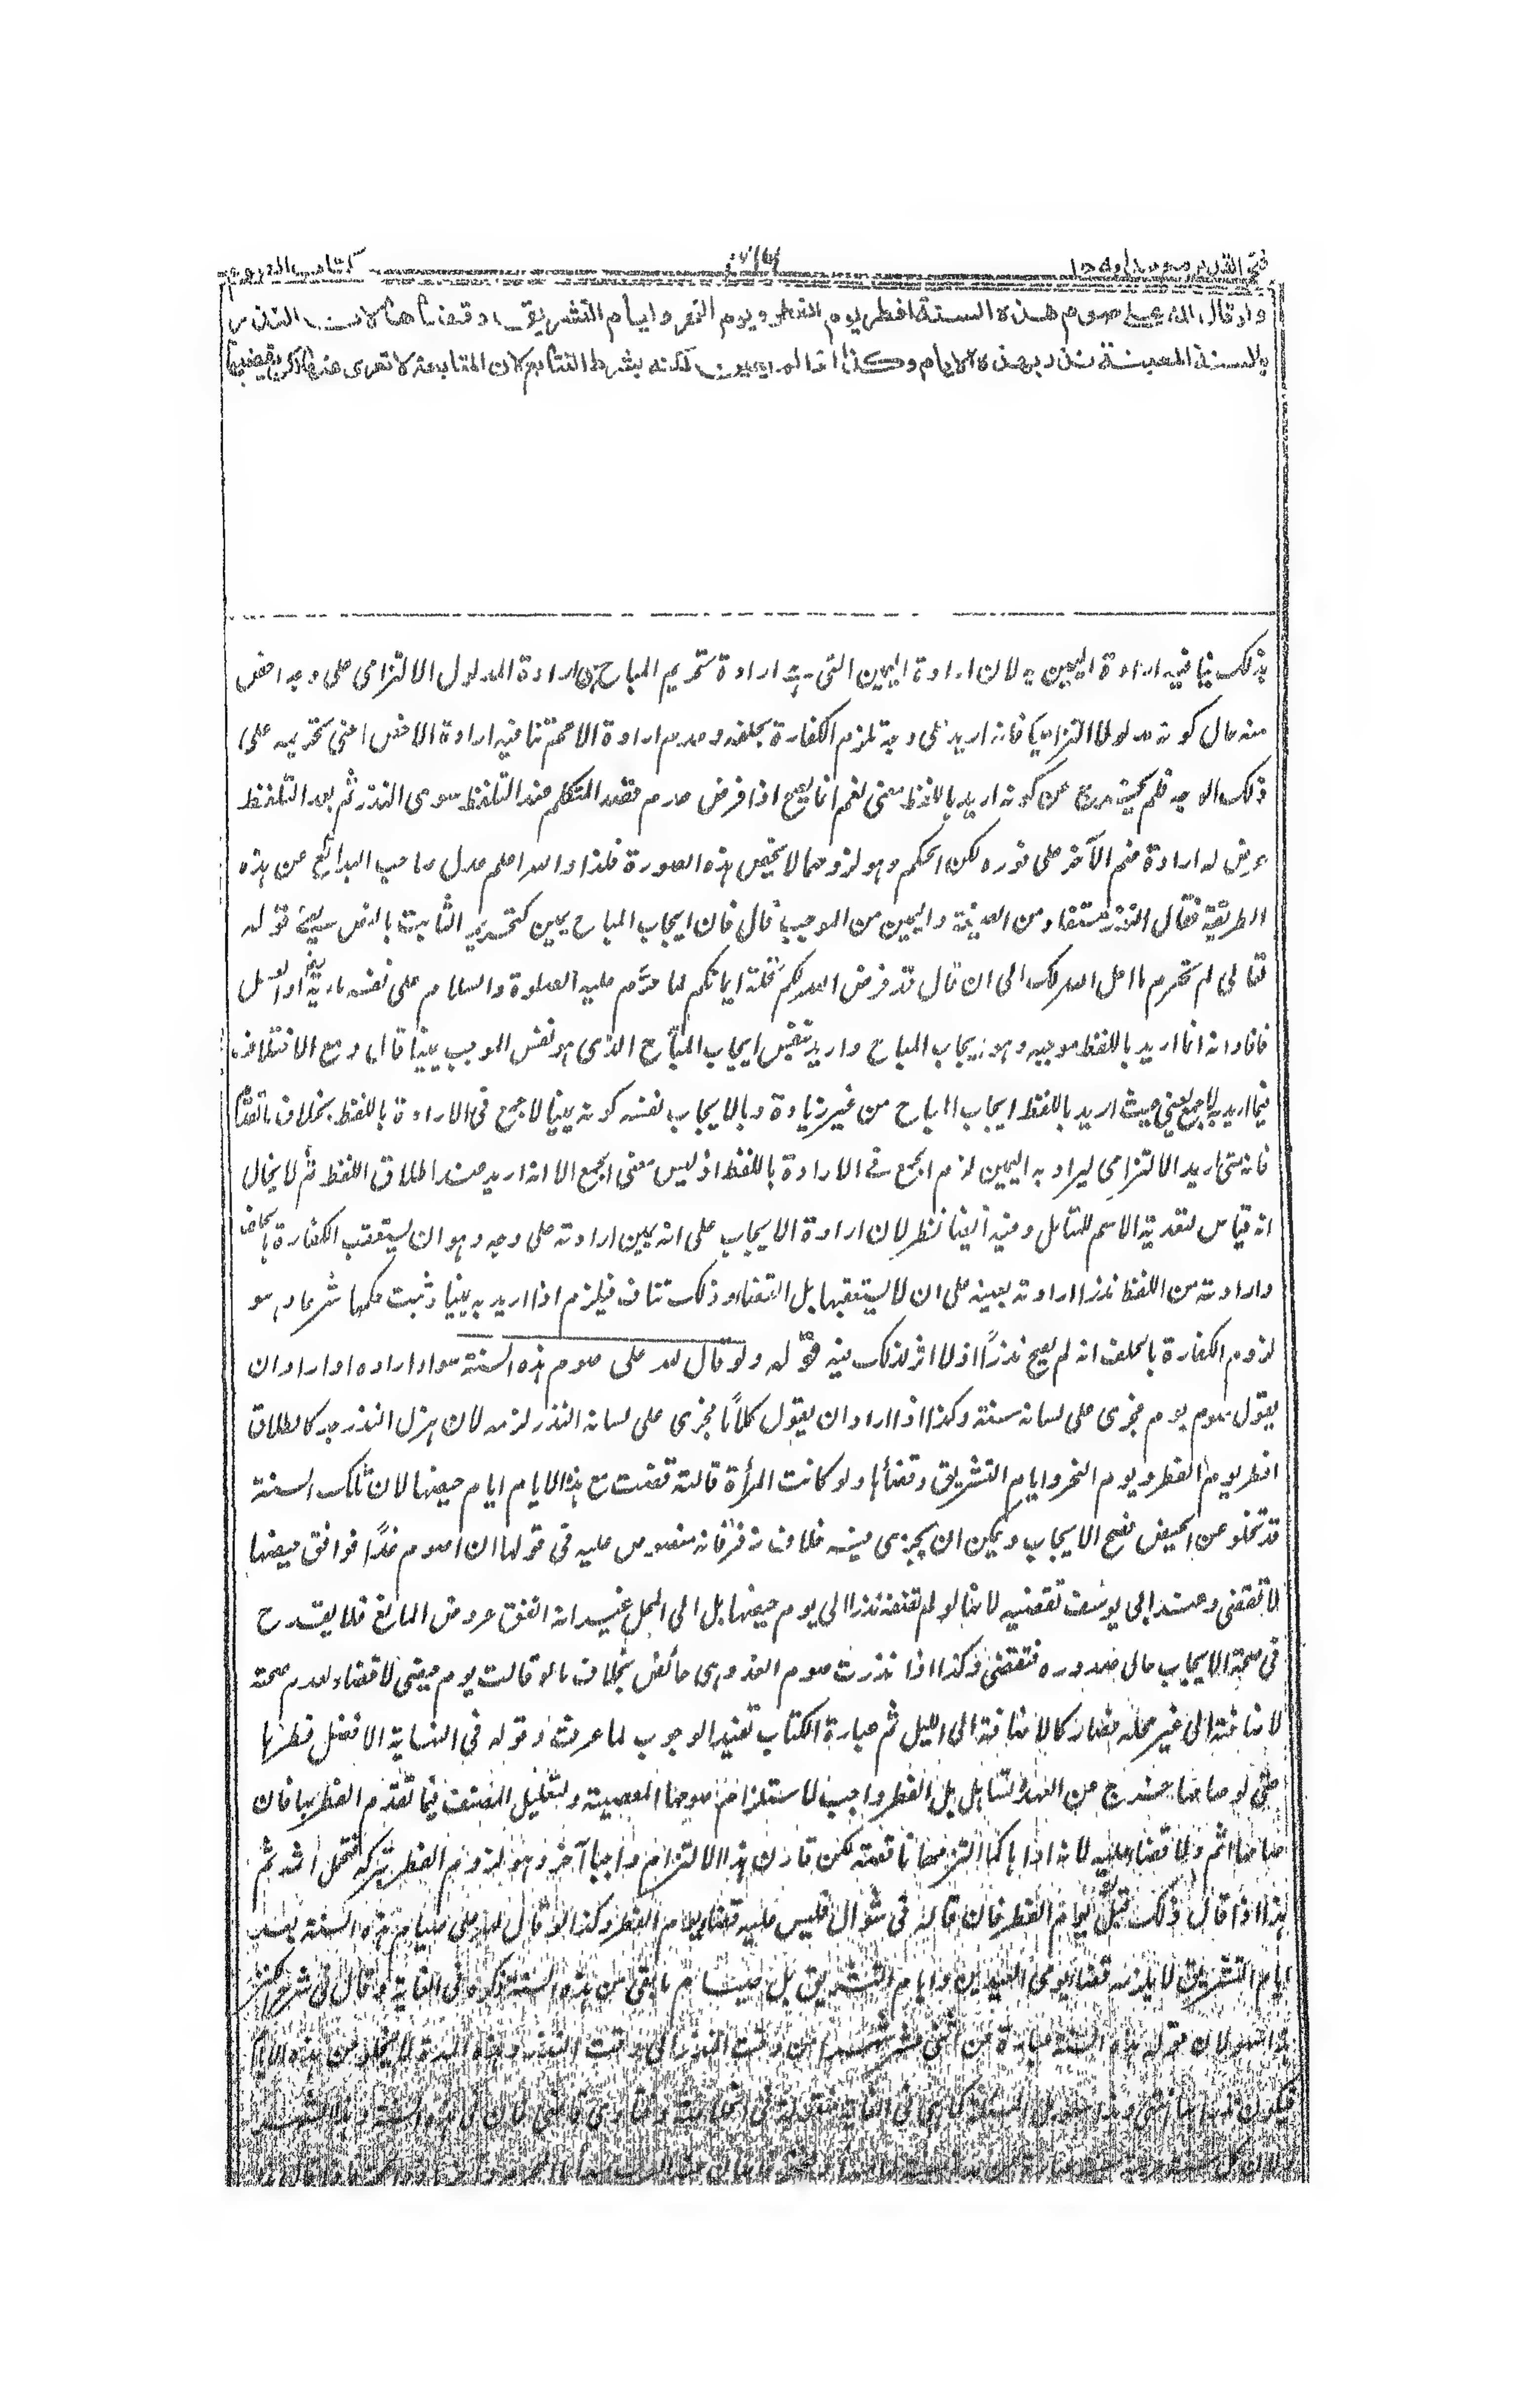 فتح القدير مع هدايه ج١ كتاب الصوم
ولو قال لله علي صوم هذه السنة افطر يوم الفطر ويوم النحر وايام التشريق وقضاها لان النذر
بالسنة المعينة نذر بهذه الايام وكذا اذا لم يعين لكنه شرط التتابع لان المتابعة لا تعرى عنها لكن يقضيها
بذلك ينافيه ارادة اليمين به لان ارادة اليمين التي هي ارادة تحريم المباح هي ارادة المدلول الالتزامي على وجه اخص
منه حال كونه مدلولا التزاميا فانه اريد على وجه تلزم الكفارة بخلفه وعدم ارادة الاعم تنافيه ارادة الاخص اعني تحريمه على
ذلك الوجه فلم يخرج عن كونه اريد باللفظ معنى نعم انما يصح اذا فرض عدم قصد المتكلم عند التلفظ سوى النذر ثم بعد التلفظ
عرض له ارادة ضم الآخر على فوره لكن الحكم وهو لزومهما لا يخص هذه الصورة فلذا والله اعلم عدل صاحب البدائع عن هذه
الطريقة فقال النذر مستفاد من الصيغة واليمين من الموجب قال فان ايجاب المباح يمين كتحريمه الثابت بالنص يعني قوله
تعالى لم تحرم ما احل الله لك الى ان قال قد فرض الله لكم تحلة ايمانكم لما حرّم عليه الصلوة والسلام على نفسه مارية او العسل
فافاد انه انما اريد باللفظ موجبه وهو ايجاب المباح واريد بنفس ايجاب المباح الذي هو نفس الموجب يمينا قال ومع الاختلاف
فيما اريد به لا جمع يعني حيث اريد باللفظ ايجاب المباح من غير زيادة وبالايجاب نفسه كونه يمينا لا جمع في الارادة باللفظ بخلاف ما تقدم
فانه متى اريد الالتزامي ليراد به اليمين لزم الجمع في الارادة باللفظ اذ ليس معنى الجمع الا انه اريد عند اطلاق اللفظ ثم لا يخال
انه قياس لتعدية الاسم للتأمل وفيه أيضا نظر لان ارادة الايجاب على انه يمين ارادته على وجه وهو ان يستعقب الكفارة بالخلف
وارادته من اللفظ نذرا ارادته بعينه على ان لا يستعقبها بل القضاء وذلك تناف فيلزم اذا اريد به يمينا وثبت حكمها شرعا وهو
لزوم الكفارة بالخلف انه لم يصح نذرًا اذ لا اثر لذلك فيه قوله ولو قال لله على صوم هذه السنة سواء اراده او اراد ان
يقول صوم يوم فجرى على لسانه سنة وكذا اذا اراد ان يقول كلامًا فجرى على لسانه النذر لزمه لان هزل النذر جد كالطلاق
افطر يوم الفطر ويوم النحر وايام التشريق وقضاها ولو كانت المرأة قالته قضت مع هذه الايام ايام حيضها لان تلك السنة
قد تخلو عن الحيض فصح الايجاب ويمكن ان يجري فيه خلاف زفر فانه منصوص عليه في قولها ان اصوم غدًا فوافق حيضها
لا تقضي وعند ابي يوسف تقضيه لانها لو لم تضفه نذرا الى يوم حيضها بل الى المحل غير انه اتفق عروض المانع فلا يقدح
في صحة الايجاب حال صدوره فتقضي وكذا اذا نذرت صوم الغد وهي حائض بخلاف ما لو قالت يوم حيضي لا قضاء لعدم صحته
لاضافته الى غير محله فصار كالاضافة الى الليل ثم عبارة الكتاب تفيد الوجوب لما عرفت وقوله في النهاية الافضل فطرها
حتى لو صامها خرج عن العهدة تساهل بل الفطر واجب لاستلزام صومها المعصية ولتعليل المصنف فيما تقدم الفطر بها فان
صامها اثم ولا قضاء عليه لانه اداها كما التزمها ناقصة لكن قارن هذا الالتزام واجبا آخر وهو لزوم الفطر تركه فتحمل اثمه ثم
هذا اذا قال ذلك قبل ايام الفطر فان قاله في شوال فليس عليه قضاء يوم الفطر وكذا لو قال لله على صيام هذه السنة بعد
ايام التشريق لا يلزمه قضاء يومي العيدين وايام التشريق بل صيام ما بقى من هذه السنة ذكره في الغاية وقال في شرح الكنز
هذا سهو لان قوله هذه السنة عبارة من اثني عشر شهرا من وقت النذر الى وقت النذر وهذه المدة لا يخلو من هذه الايام